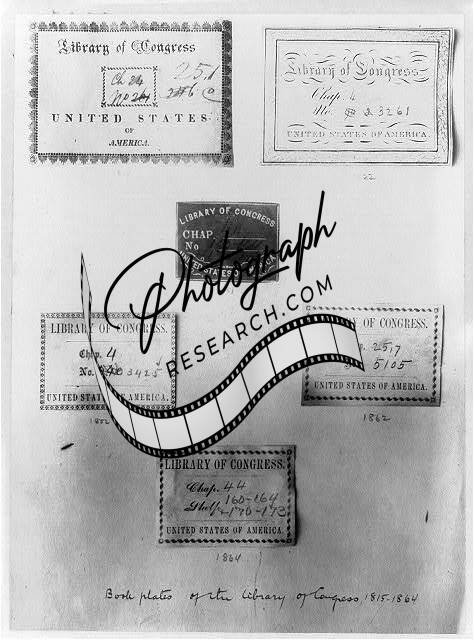 Library of Congress
Ch. 24
No 
251
UNITED STATES
OF
AMERICA.
Library of Congress
Chap. 4
No. 23261
UNITED STATES OF AMERICA.
22
LIBRARY OF CONGRESS
CHAP.
No
UNITED STATES
Photograph
RESEARCH.COM
LIBRARY OF CONGRESS.
Chap. 4
No. 3425
UNITED STATES OF AMERICA.
OF CONGRESS.
5105
UNITED STATES OF AMERICA.
1862
LIBRARY OF CONGRESS.
Chap. 44
Shelf. 160-164
170-173
UNITED STATES OF AMERICA.
1864
Book plates of the Library of Congress 1815-1864